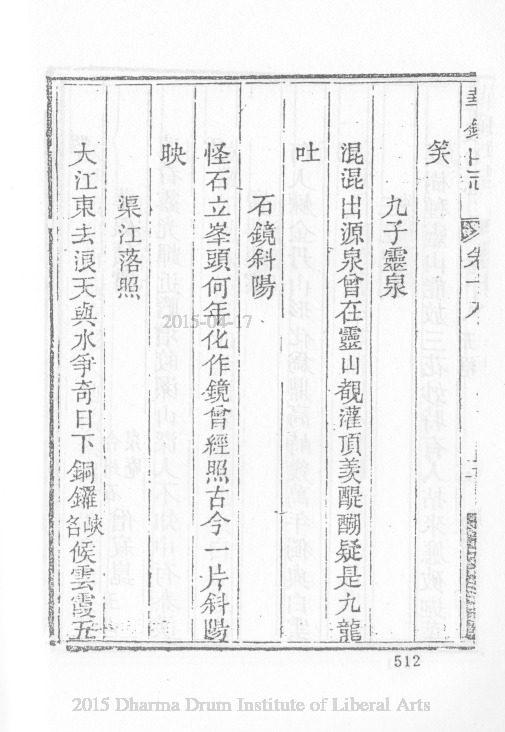 笑
九子靈泉
混混出源泉曾在靈山覩灌頂羨醍醐疑是九龍
吐
石鏡斜陽
怪石立峯頭何年化作鏡曾經照古今一片斜陽
映
渠江落照
大江東去浪天與水爭奇日下銅鑼峽名候雲霞五
512
2015-04-17
2015 Dharma Drum Institute of Liberal Arts